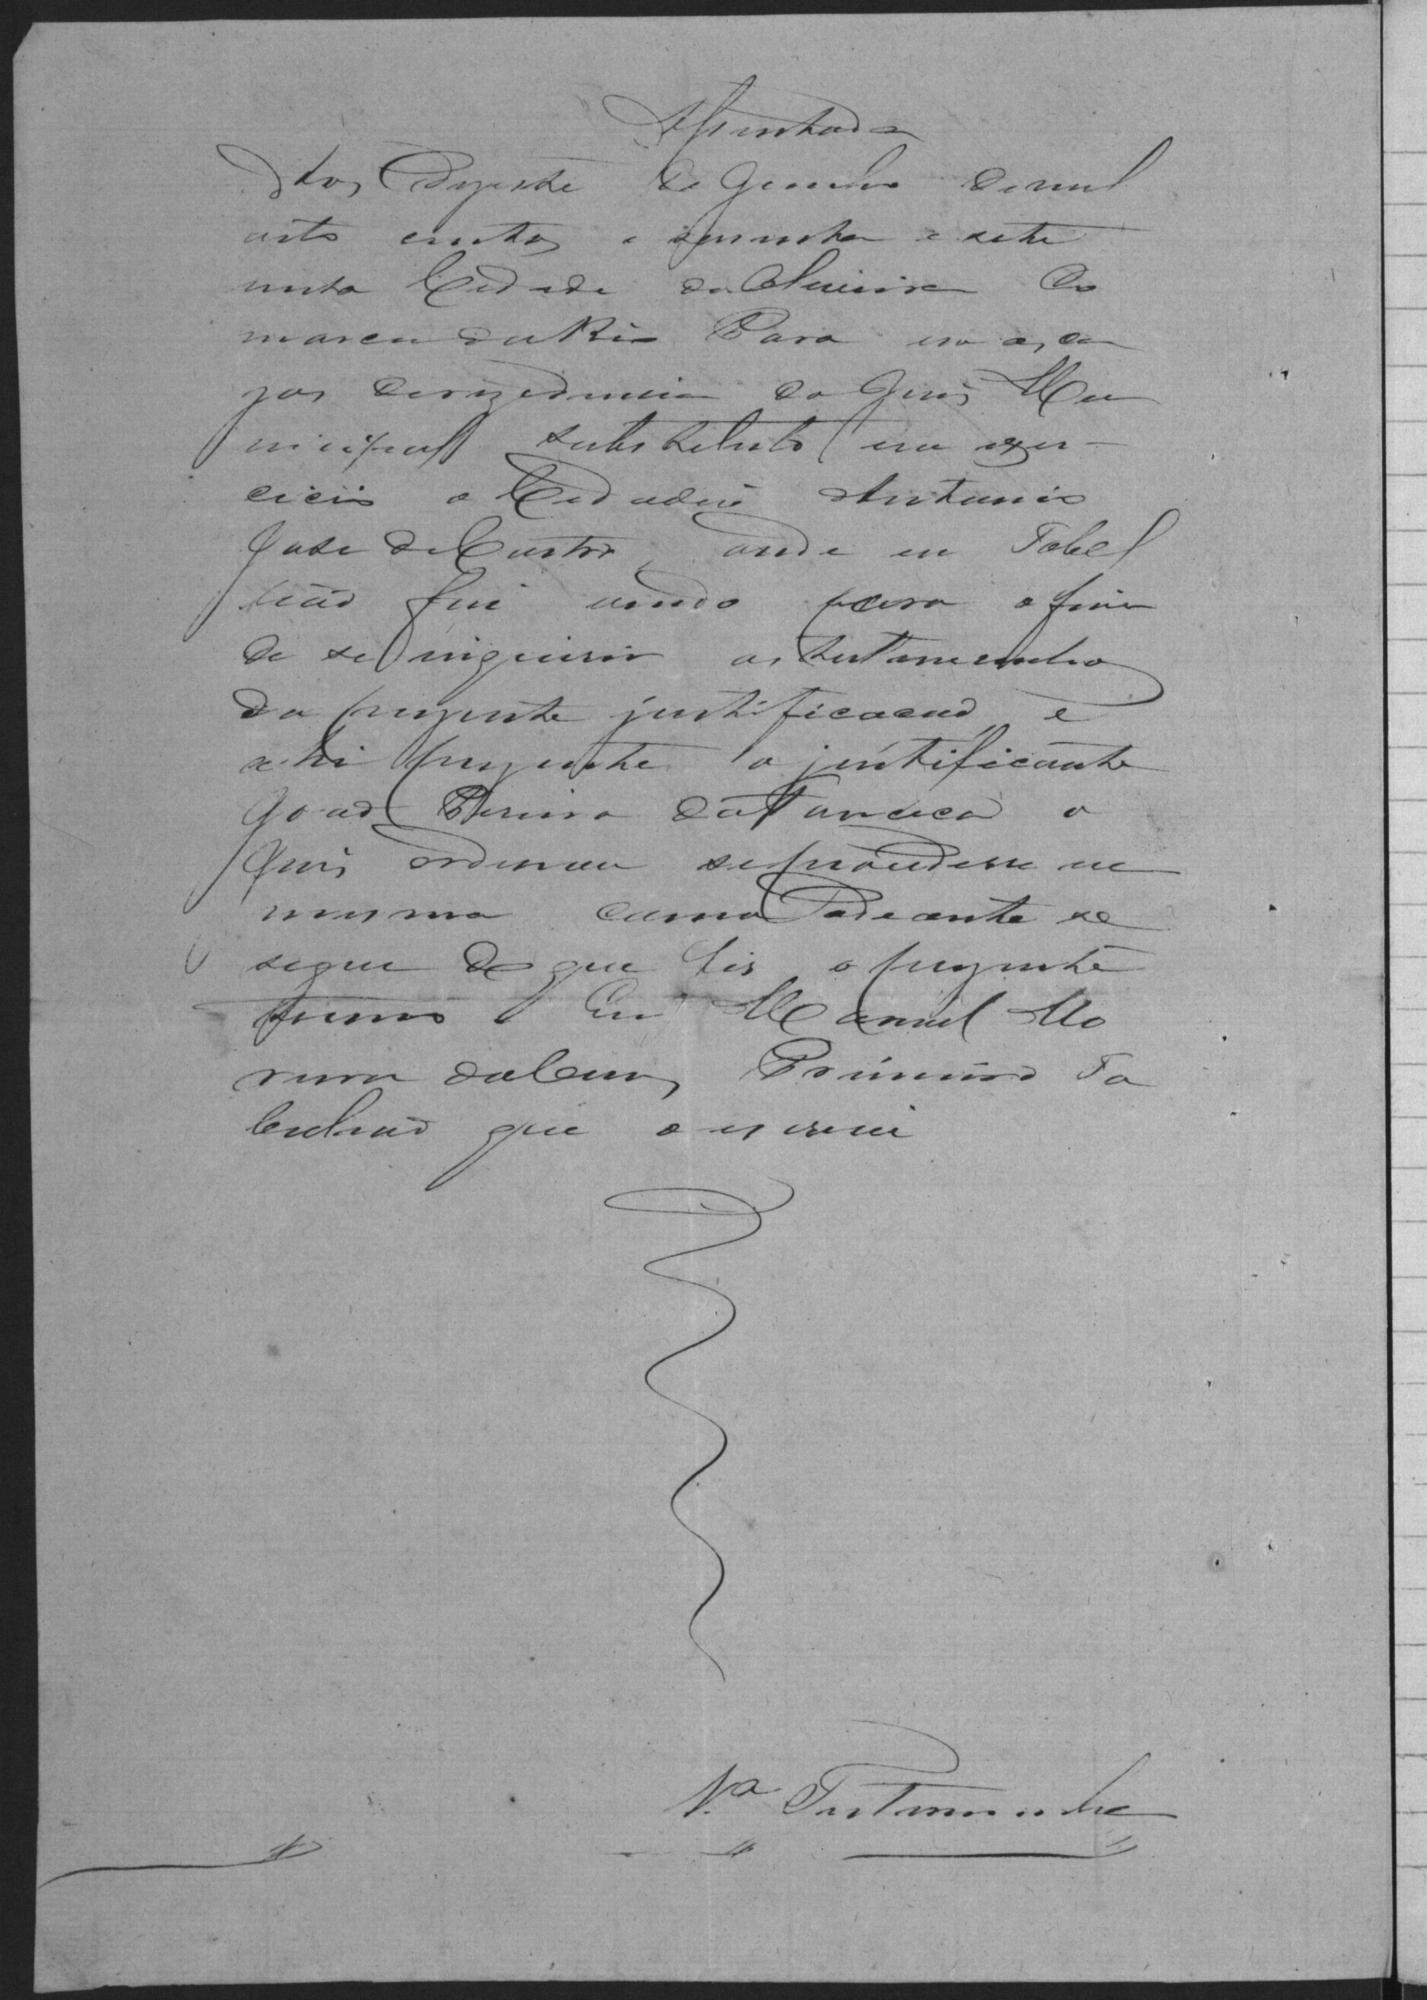 Assentada
Aos dezesete de Junho de mil
oito centos e secenta e sete
nesta Cidade da Oliveira Co
marca do Rio Para em as ca
zas de rezidencia do Juis Mu
nicipal substituto em exer-
cicio o Cidadão Antonio
Jose de Castro, onde eu Tabel
lião fui vindo para o fim
de se inquirir as testemunhas
da prezente justificacão e
ahi prezente o justificante
João Pereira da Fonceca o
Juis ordenou se procedesse na
mesma como adeante se
segue do que fis o prezente
termo Eu Manuel Mo
reira da Primeiro Ta
bellião que o escrevi
1.a Testemunha